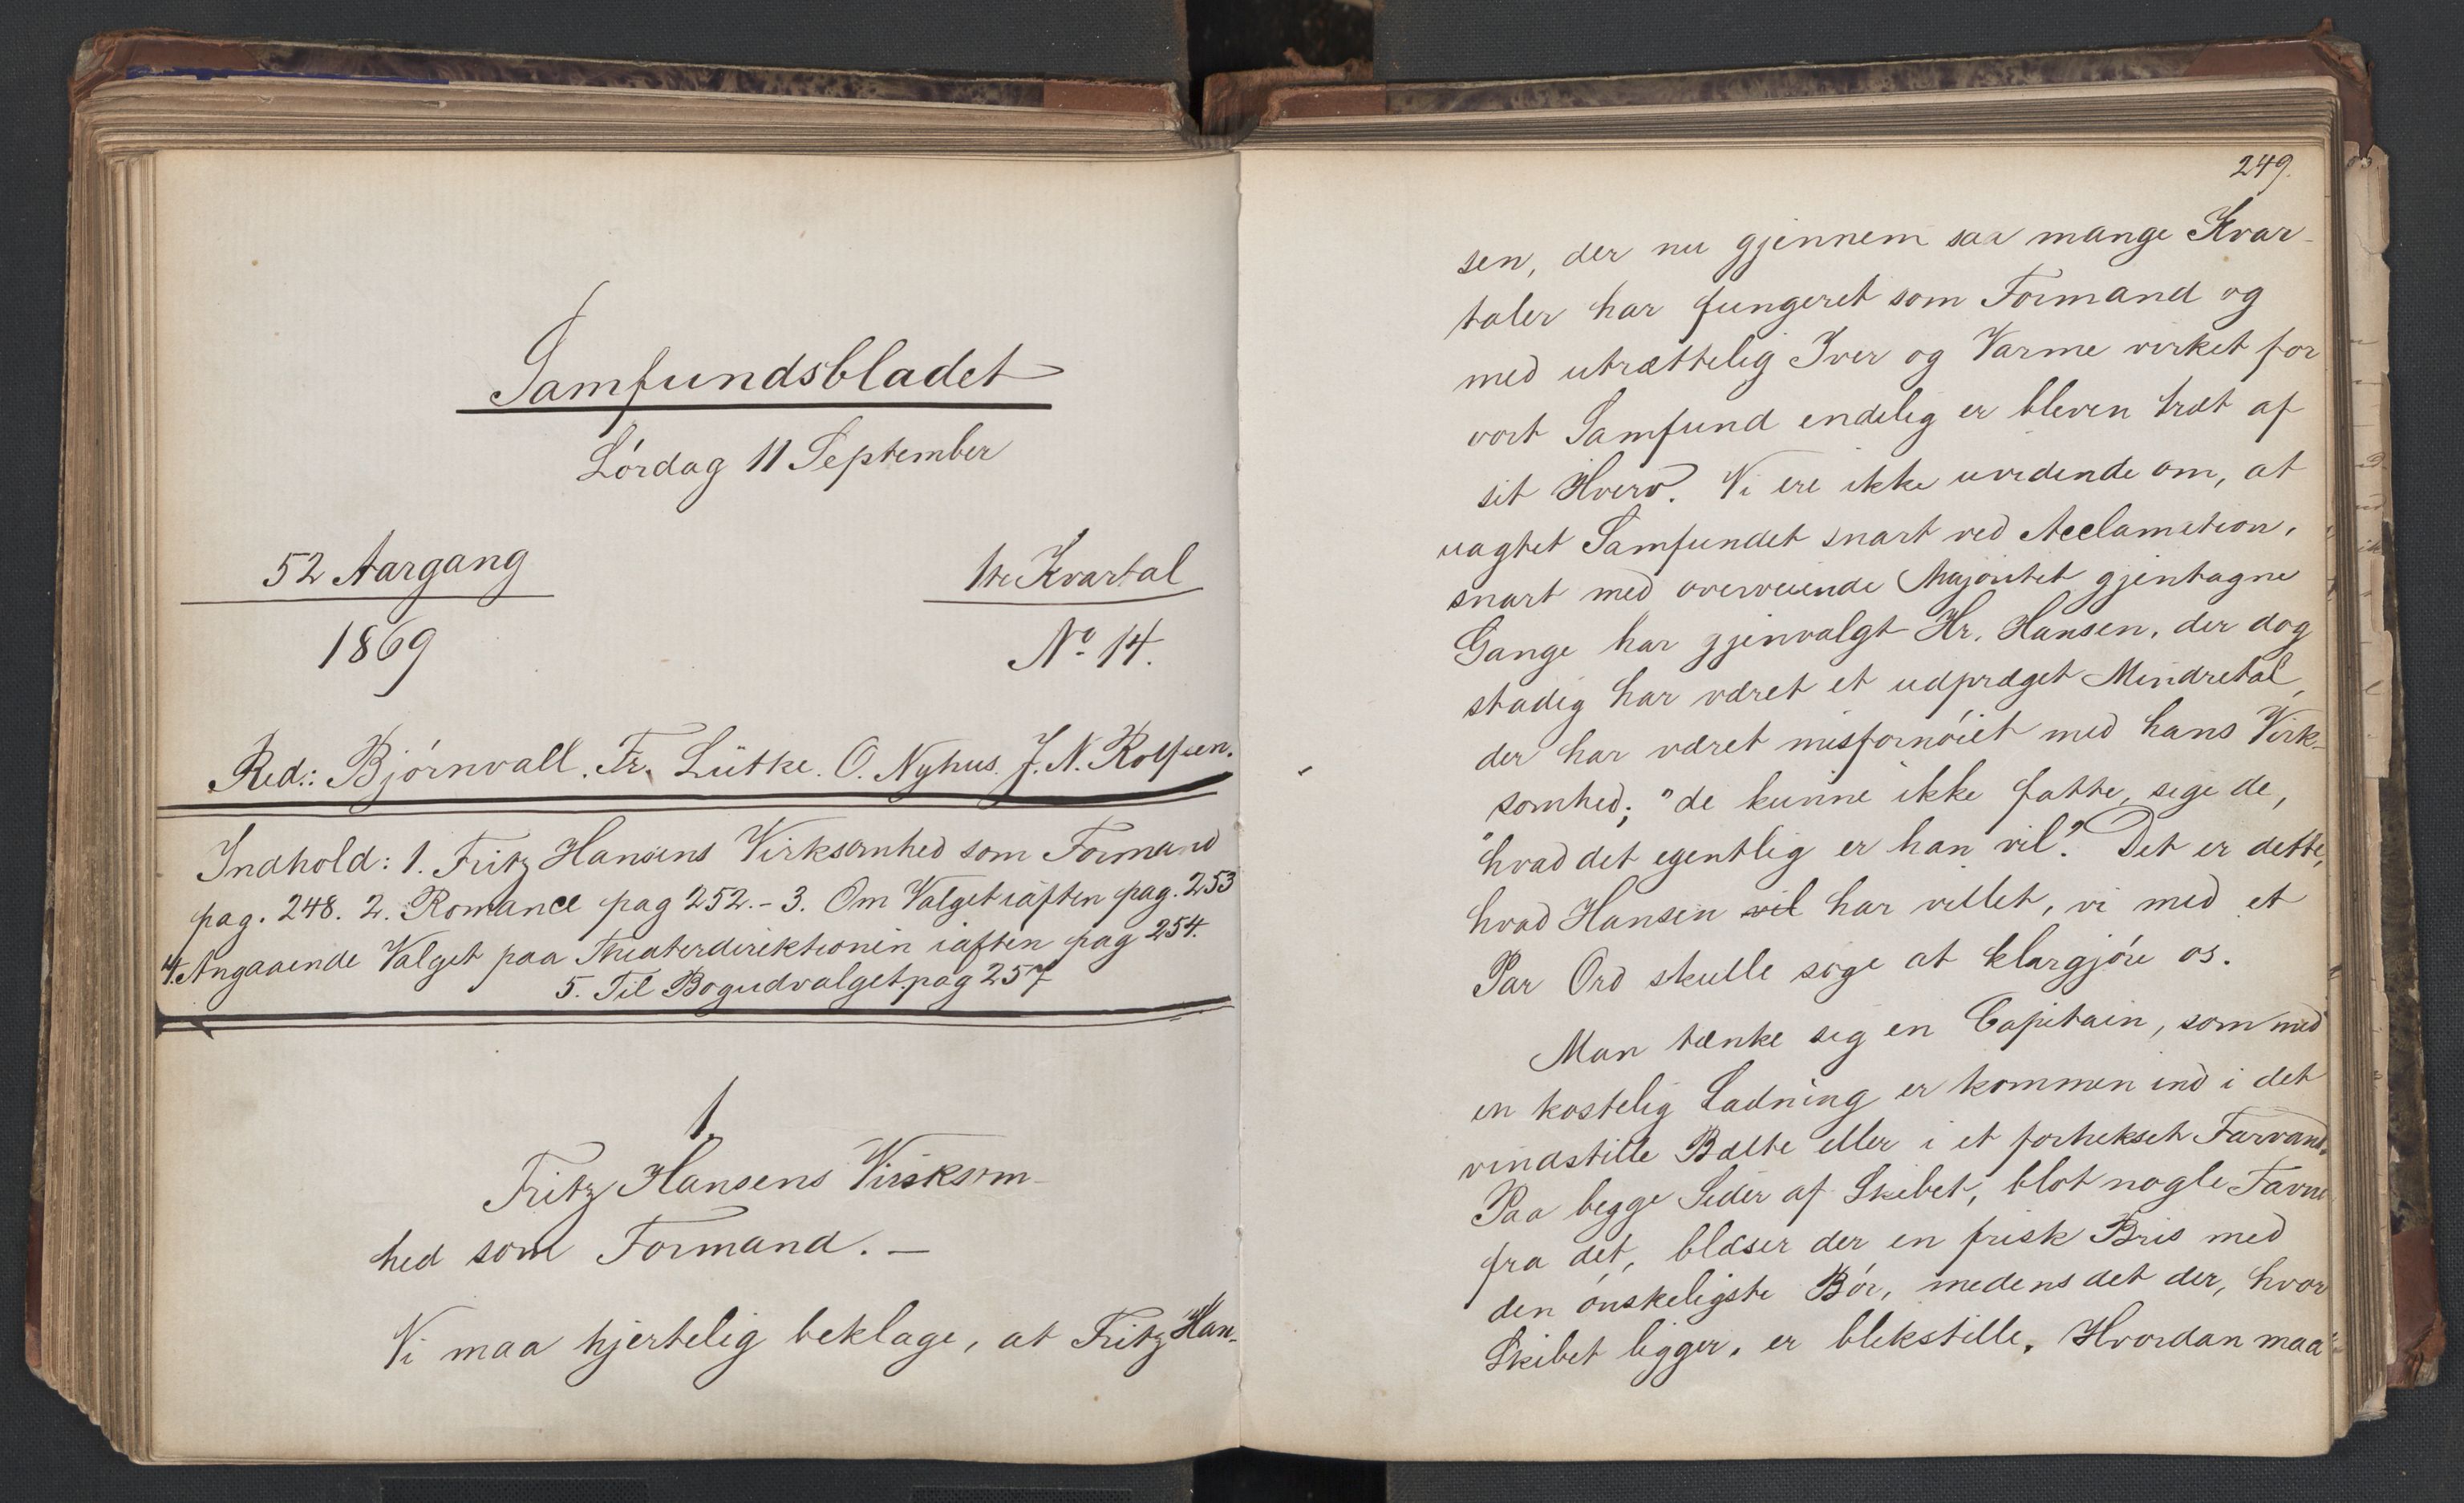 Samfundsbladet
Lórdag 11 September
52 Aargang
1869
1ste Kvartal
No 14.
Red.: Bjórnvall. Fr. Lütke. O. Nyhus. J. N. Rolfsen.
Indhold: 1. Fritz Hansens Virksomhed som Formand
pag. 248. 2. Romance pag 252. - 3. Om Valget iaften pag. 253
4. Angaaende Valget paa Theaterdirektionen iaften pag 254.
5. Til Bogudvalget pag 257
1.
Fritz Hansens Virksom-
hed som Formand. —
Vi maa hjertelig beklage, at Fritz Han-
249.
sen, der nu gjennem saa mange Kvar-
taler har fungeret som Formand og
med utrættelig Iver og Varme virket for
vort Samfund endelig er bleven træt af
sit Hverv. Vi ere ikke uvidende om, at
uagtet Samfundet snart ved Acclamation,
snart med overveiende Majoritet gjentagne
Gange har gjenvalgt Hr. Hansen, der dog
stadig har været et udpræget Mindretal,
der har været misfornóiet med hans Virk-
somhed; "de kunne ikke fatte, sige de,
"hvad det egentlig er han vil." Det er dette,
hvad Hansen vil har villet, vi med et
Par Ord skulle søge at klargjóre os.
Man tænke sig en Capitain, som med
en kostelig Ladning er kommen ind i det
vindstille Bælte eller i et forhekset Farvand.
Paa begge Sider af Skibet, blot nogle Favne
fra det, blæser der en frisk Bris med
den ónskeligste Bór, medens det der, hvor
Skibet ligger, er blikstille. Hvordan maa